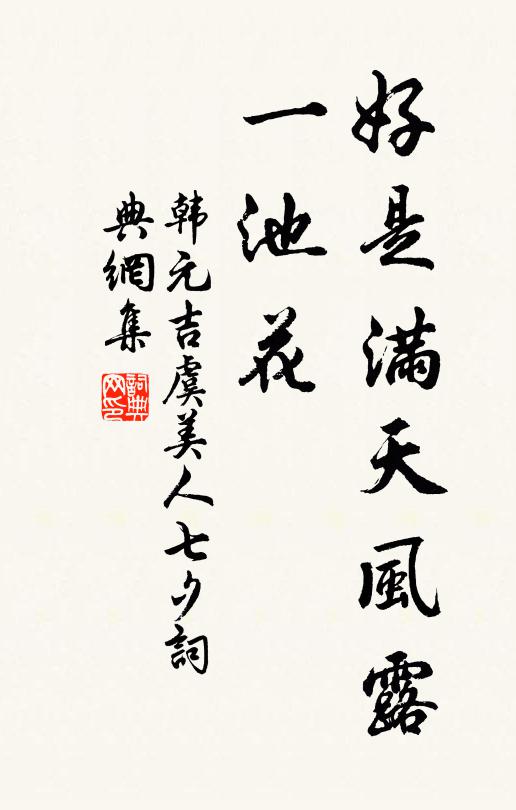 好是滿天風露
一池花
韩元吉虞美人七夕詞
典網集
詞典
网印